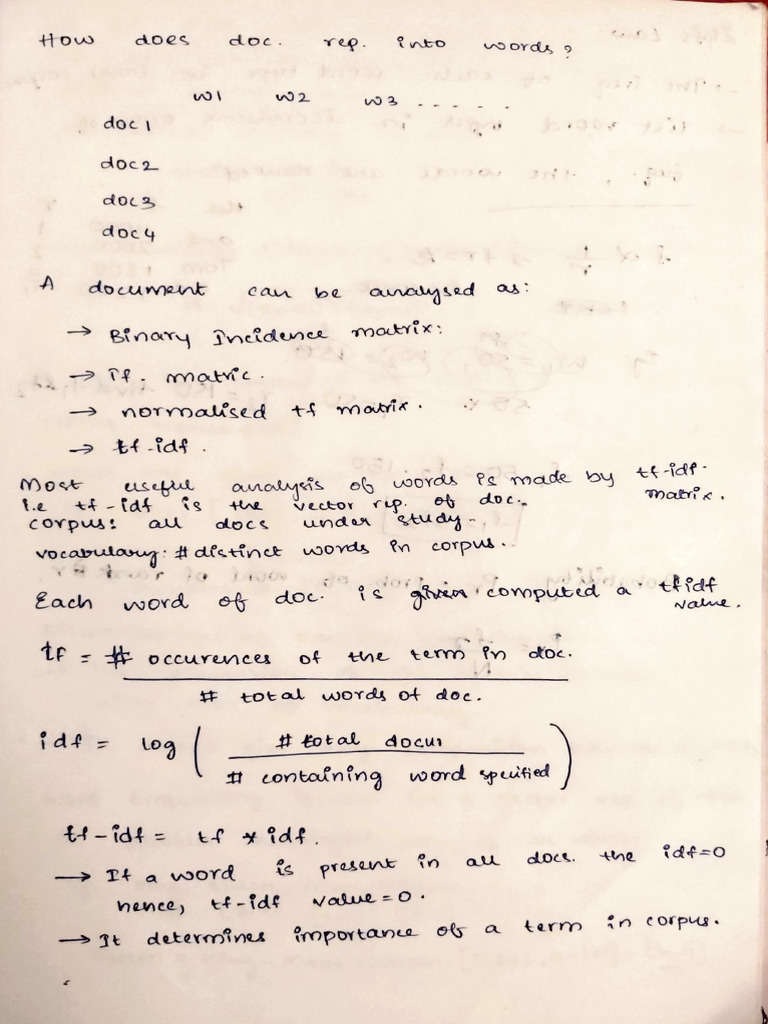 How does doc. rep. into words?
w1 w2 w3 . . . . . .
doc1
doc2
doc3
doc4
A document can be analysed as:
→ Binary Incidence matrix:
→ tf. matric.
→ normalised tf matrix.
→ tf-idf.
Most useful analysis of words is made by tf-idf. matrix.
i.e tf-idf is the vector rep. of doc.
corpus: all docs under study.
vocabulary: # distinct words in corpus.
Each word of doc. is computed a tfidf value.
tf = # occurences of the term in doc.
# total words of doc.
idf = log ( # total docu
# containing word specified )
tf-idf = tf * idf.
→ If a word is present in all docs. the idf=0
hence, tf-idf value = 0.
→ It determines importance of a term in corpus.